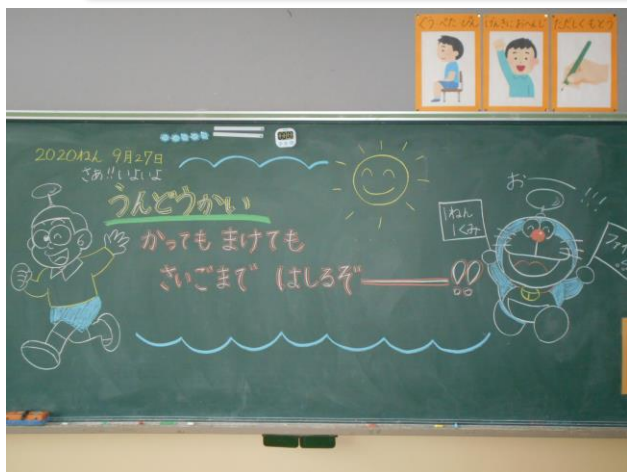 ぐう ぺた ぴん
げんきにおへんじ
ただしくもとう
2020ねん 9月27日
さぁ!!いよいよ
うんどうかい
かっても まけても
さいごまで はしるぞー!!
おー!!!
1ねん
1くみ
ファイ